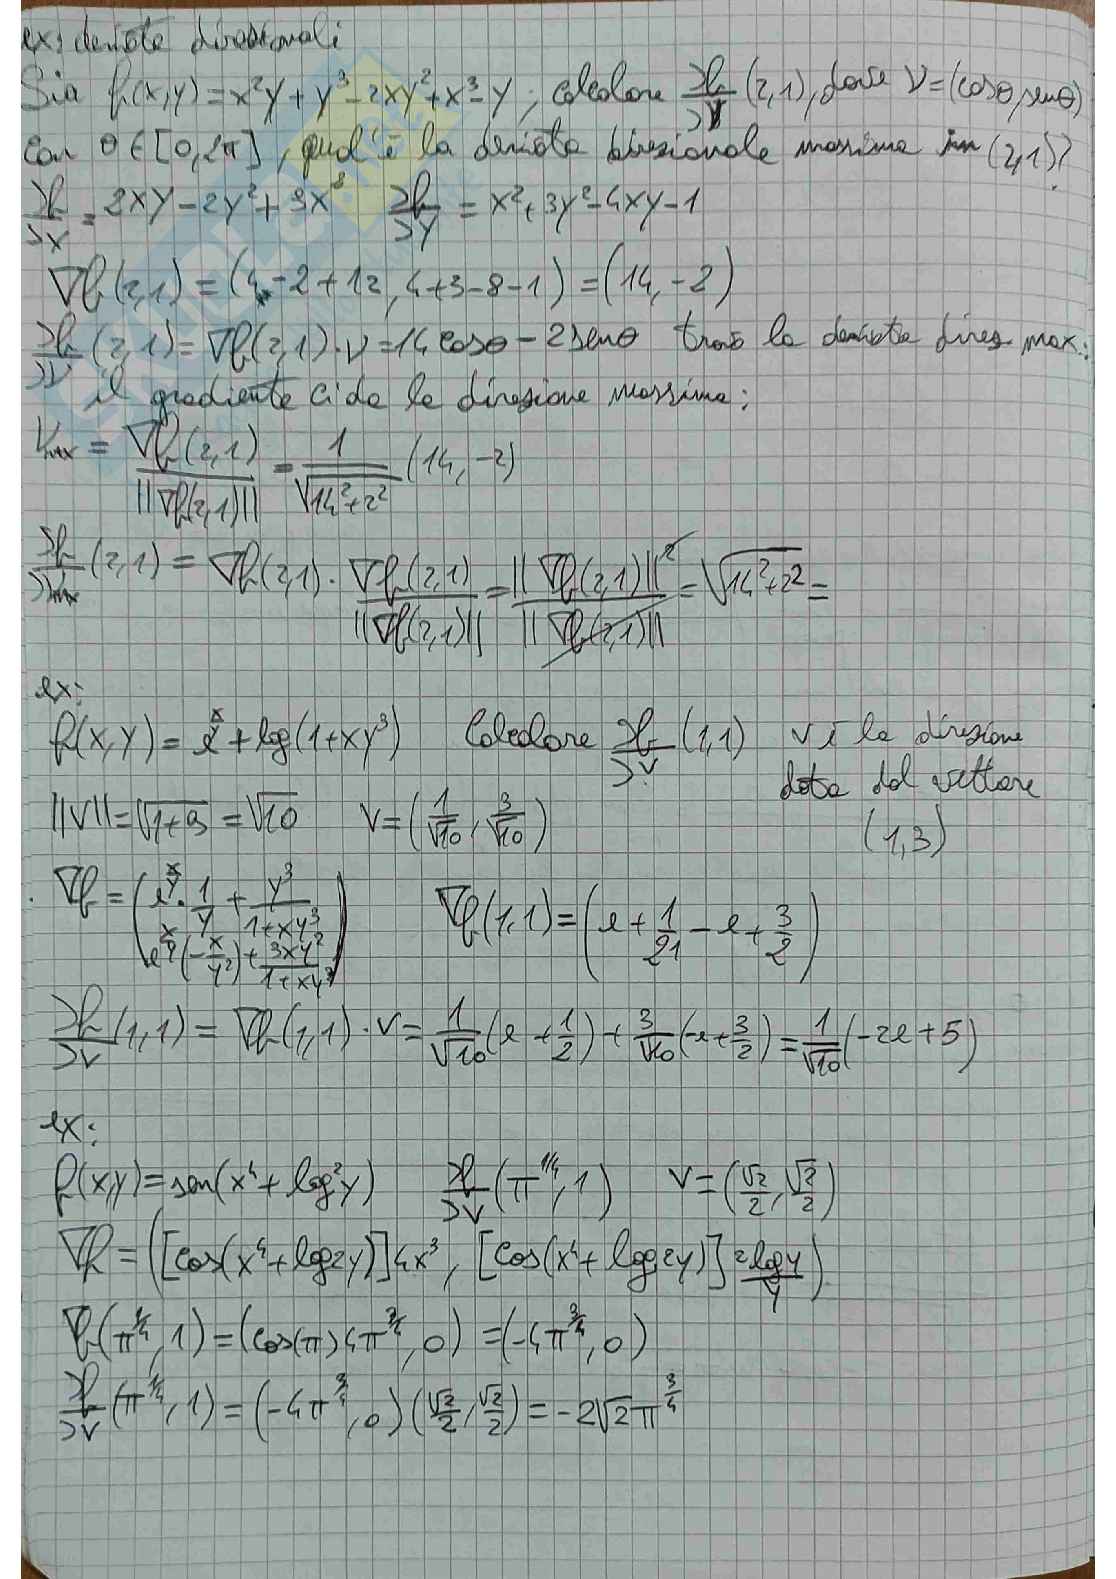 ex: derivate direzionali
Sia f(x,y) = x²y + y³ - 2xy² + x³ - y ; calcolare ∂f/∂v (2,1), dove v = (cosθ, senθ)
con θ ∈ [0, 2π], qual è la derivata direzionale massima in (2,1)?
∂f/∂x = 2xy - 2y² + 3x² ∂f/∂y = x² + 3y² - 4xy - 1
∇f(2,1) = (4 - 2 + 12, 4 + 3 - 8 - 1) = (14, -2)
∂f/∂v (2,1) = ∇f(2,1) · v = 14 cosθ - 2 senθ trovo la derivata direz max:
il gradiente ci da la direzione massima:
Vmax = ∇f(2,1)/||∇f(2,1)|| = 1/√(14²+2²) (14, -2)
∂f/∂Vmax (2,1) = ∇f(2,1) · ∇f(2,1)/||∇f(2,1)|| = ||∇f(2,1)||²/||∇f(2,1)|| = √(14²+2²) =
ex:
f(x,y) = e^(x/y) + log(1+xy³) Calcolare ∂f/∂v (1,1) v è la direzione
data dal vettore
||v|| = √(1+9) = √10 v = (1/√10, 3/√10) (1,3)
∇f = (e^(x/y) · 1/y + y³/(1+xy³)
e^(x/y) (-x/y²) + 3xy²/(1+xy³)) ∇f(1,1) = (e + 1/2, - e + 3/2)
∂f/∂v (1,1) = ∇f(1,1) · v = 1/√10 (e + 1/2) + 3/√10 (-e + 3/2) = 1/√10 (-2e + 5)
ex:
f(x,y) = sen(x⁴ + log²y) ∂f/∂v (π^(1/4), 1) v = (√2/2, √2/2)
∇f = ([cos(x⁴ + log2y)] 4x³, [cos(x⁴ + log2y)] 2logy/y)
∇f(π^(1/4), 1) = (cos(π) 4π^(3/4), 0) = (-4π^(3/4), 0)
∂f/∂v (π^(1/4), 1) = (-4π^(3/4), 0) (√2/2, √2/2) = -2√2 π^(3/4)